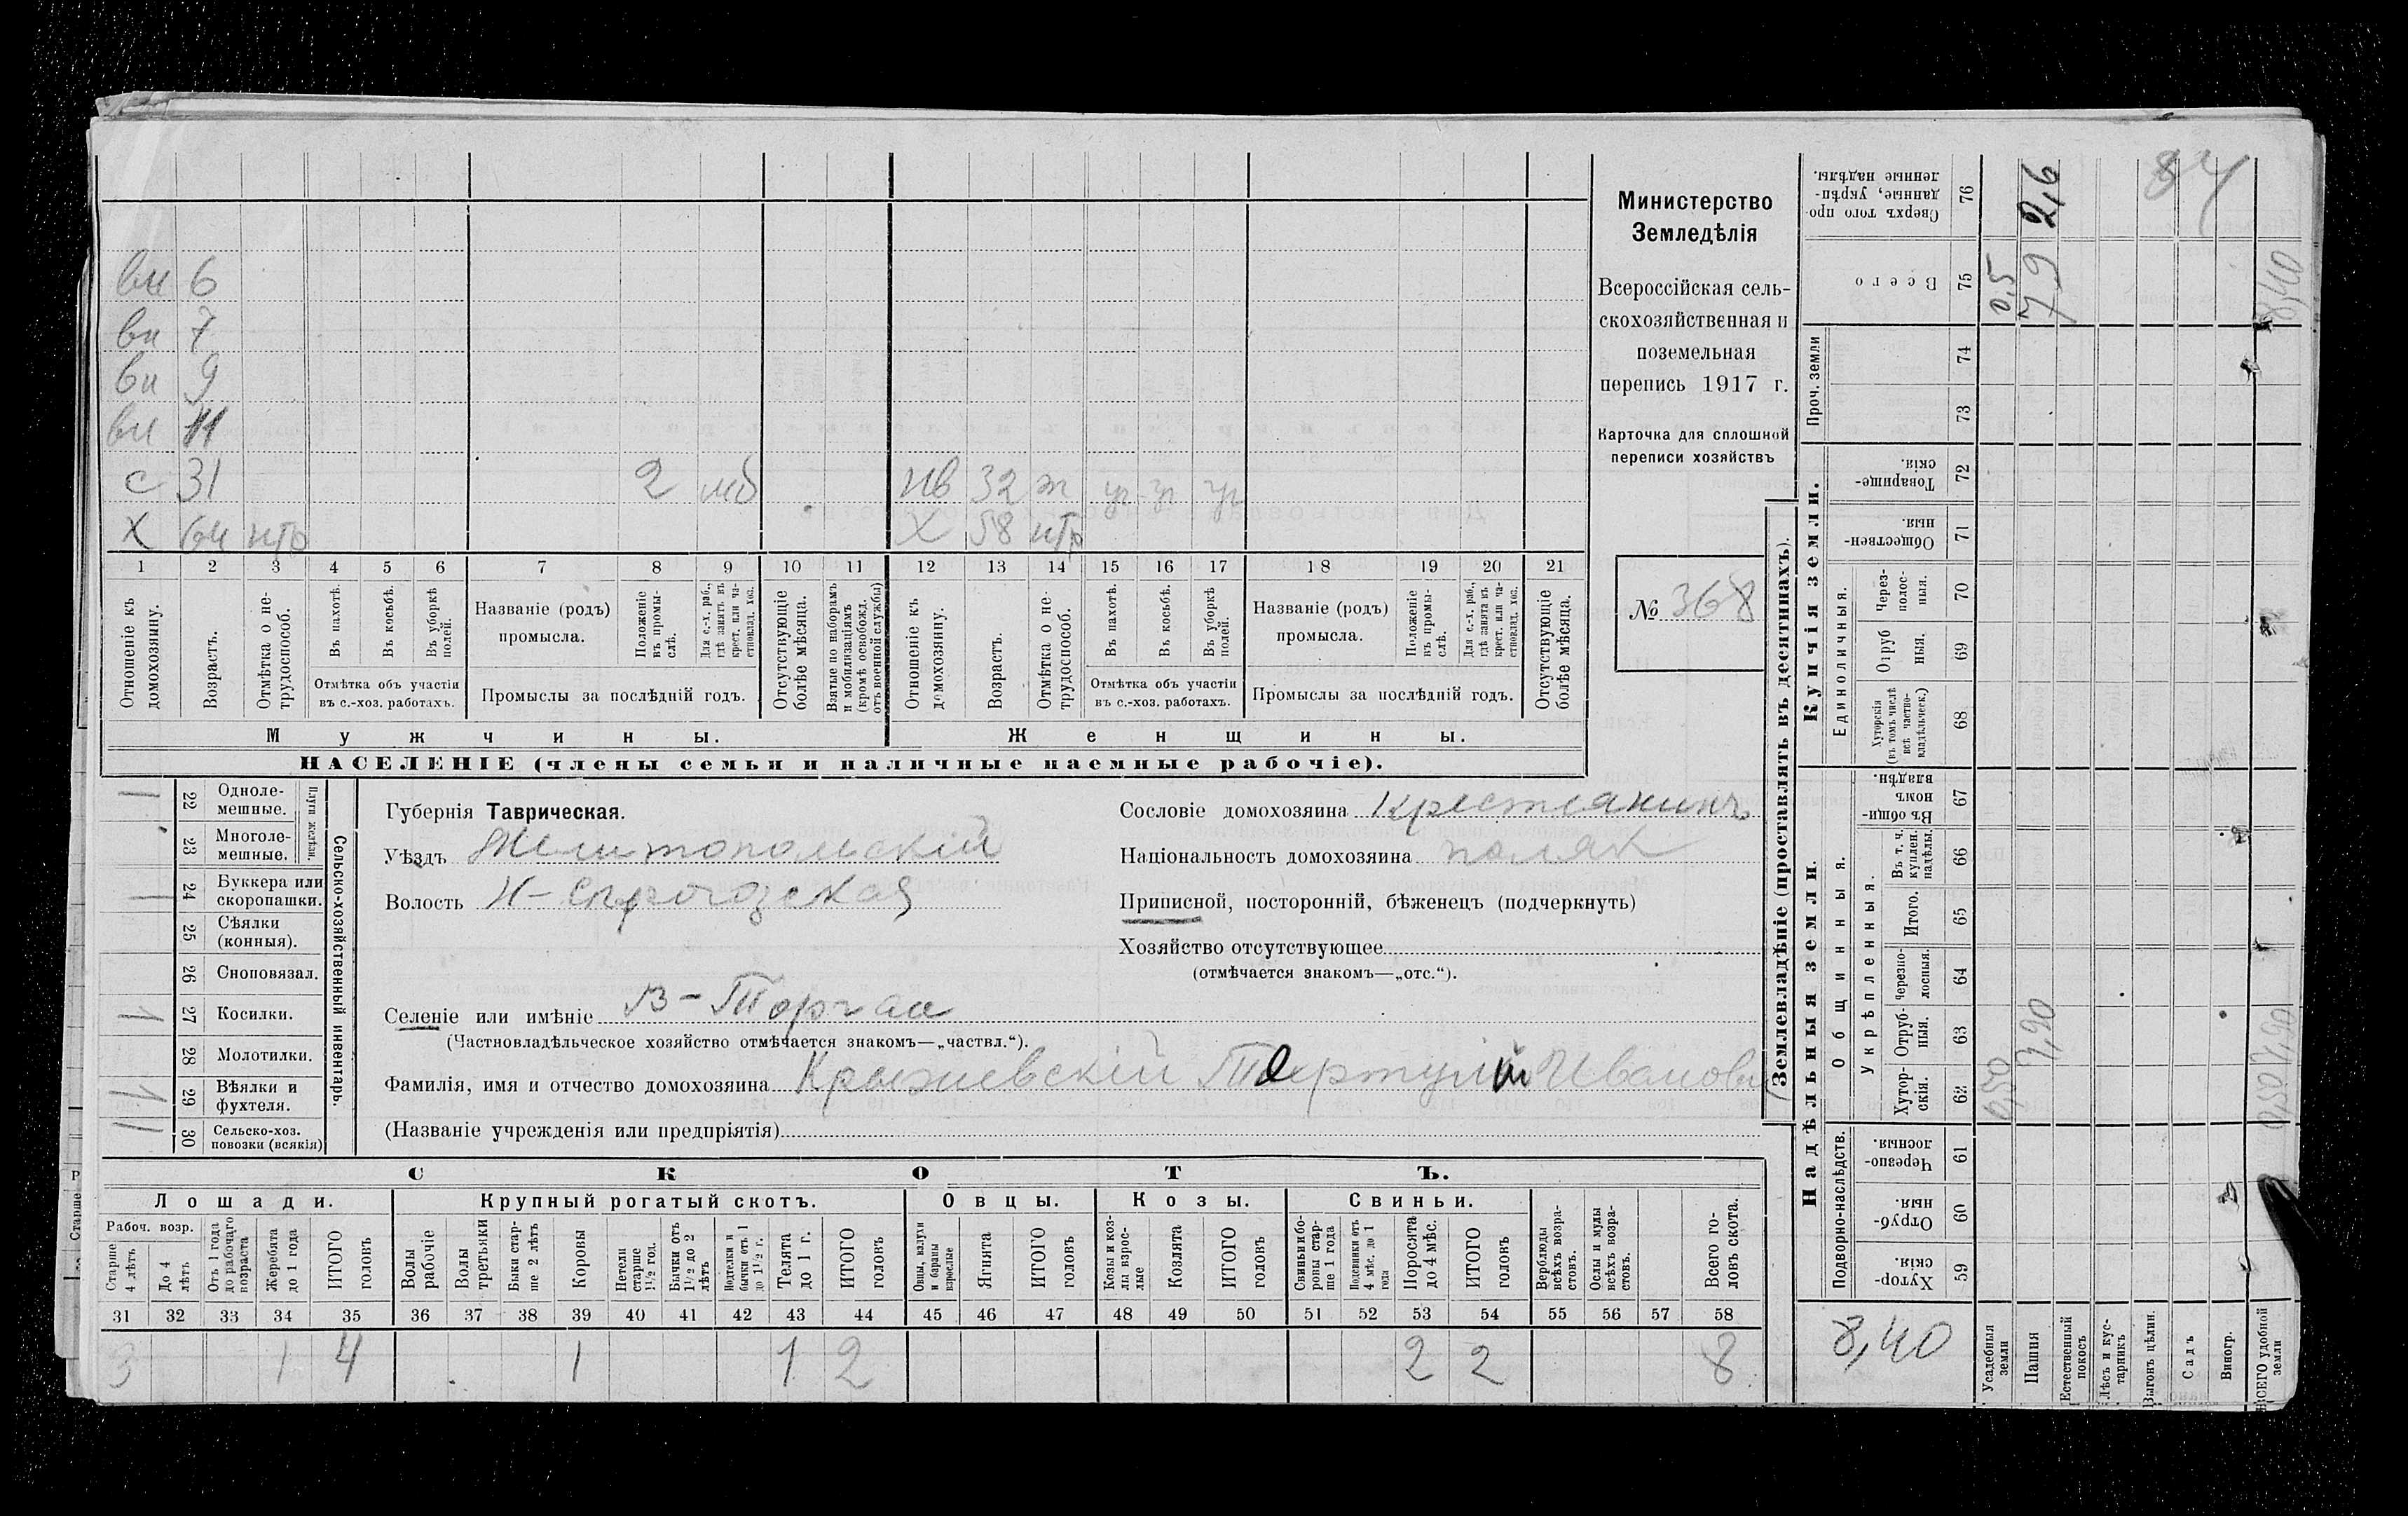 вн 6
вн 7
вн 9
вн 11
с 31 2 мб нв 32 ж
Х 64 нтр Х 58 нтр
1 2 3 4 5 6 7 8 9 10 11 12 13 14 15 16 17 18 19 20 21
Отношеніе къ домохозяину.
Возрастъ.
Отмѣтка о не-трудоспособ.
Въ пахотѣ.
Въ косьбѣ.
Въ уборкѣ полей.
Отмѣтка объ участіи
въ с.-хоз. работахъ.
Названіе (родъ)
промысла.
Положеніе въ промы-слѣ.
Для с.-х. раб., гдѣ занятъ въ крест. или ча-стновлад. хоз.
Промыслы за послѣдній годъ.
Отсутствующіе болѣе мѣсяца.
Взятые по наборамъ и мобилизаціямъ (кромѣ освобожд. отъ военной службы)
Отношеніе къ домохозяину.
Возрастъ.
Отмѣтка о не-трудоспособ.
Въ пахотѣ.
Въ косьбѣ.
Въ уборкѣ полей.
Отмѣтка объ участіи
въ с.-хоз. работахъ.
Названіе (родъ)
промысла.
Положеніе въ промы-слѣ.
Для с.-х. раб., гдѣ занята въ крест. или ча-стновлад. хоз.
Промыслы за послѣдній годъ.
Отсутствующіе болѣе мѣсяца.
Мужчины. Женщины.
НАСЕЛЕНІЕ (члены семьи и наличные наемные рабочіе).
Министерство
Земледѣлія
Всероссійская сель-
скохозяйственная и
поземельная
перепись 1917 г.
Карточка для сплошной
переписи хозяйствъ
№ 368
Сельско-хозяйственный инвентарь.
Плуги желѣзн.
1 22 Одноле-мешные.
23 Многоле-мешные.
1 24 Буккера или скоропашки.
25 Сѣялки (конныя).
26 Сноповязал.
1 27 Косилки.
28 Молотилки.
1 29 Вѣялки и фухтеля.
30 Сельско-хоз. повозки (всякія)
Губернія Таврическая.
Уѣздъ Мелитопольскій
Волость Н-Сѣрогозская
Селеніе или имѣніе В-Торгаи
(Частновладѣльческое хозяйство отмѣчается знакомъ—„частвл.“).
Фамилія, имя и отчество домохозяина Крыжевскій Ивановъ
(Названіе учрежденія или предпріятія)
Сословіе домохозяина Крестьянинъ
Національность домохозяина поляк
Приписной, посторонній, бѣженецъ (подчеркнуть)
Хозяйство отсутствующее
(отмѣчается знакомъ—„отс.“).
СКОТЪ.
Лошади. Крупный рогатый скотъ. Овцы. Козы. Свиньи.
Рабоч. возр.
Старше 4 лѣтъ
До 4 лѣтъ
Отъ 1 года до рабочаго возраста
Жеребята до 1 года
ИТОГО головъ
Волы рабочіе
Волы третьяки
Быки стар-ше 2 лѣтъ
Коровы
Нетели старше 1½ год.
Бычки отъ 1½ до 2 лѣтъ
Нетелки и бычки отъ 1 до 1½ г.
Телята до 1 г.
ИТОГО головъ
Овцы, валухи и бараны взрослые
Ягнята
ИТОГО головъ
Козы и коз-лы взрос-лые
Козлята
ИТОГО головъ
Свиньи и бо-ровы стар-ше 1 года
Подсвинки отъ 4 мѣс. до 1 года
Поросята до 4 мѣс.
ИТОГО головъ
Верблюды всѣхъ возра-стовъ.
Ослы и мулы всѣхъ возра-стовъ.
Всего го-ловъ скота.
31 32 33 34 35 36 37 38 39 40 41 42 43 44 45 46 47 48 49 50 51 52 53 54 55 56 57 58
3 1 4 1 1 2 2 2 8
(Землевладѣніе (проставлять въ десятинахъ).
Сверхъ того про-данные, укрѣп-ленные надѣлы. 76 2,6
84
Всего 75 0,5 7,9 8,40
Проч. земли
74
73
Купчія земли.
Товарище-скія. 72
Обществен-ныя. 71
Единоличныя.
Через-полос-ныя. 70
Отруб ныя. 69
Хуторскія (въ томъ числѣ всѣ частно-владѣльческ.) 68
Надѣльныя земли.
Общинныя.
Въ общи-номъ владѣн. 67
Укрѣпленныя.
Въ т. ч. куплен. надѣлы. 66
Итого. 65
Черезпо-лосныя. 64
Отруб-ныя. 63 7,90 7,90
Хутор-скія. 62 0,50 0,50
Подворно-наслѣдств.
Черезпо-лосныя. 61
Отруб-ныя. 60
Хутор-скія. 59
8,40
Усадебныя земли
Пашня
Естественный покосъ
Лѣсъ и кус-тарникъ
Выгонъ цѣлин.
Садъ
Виногр.
ВСЕГО удобной земли